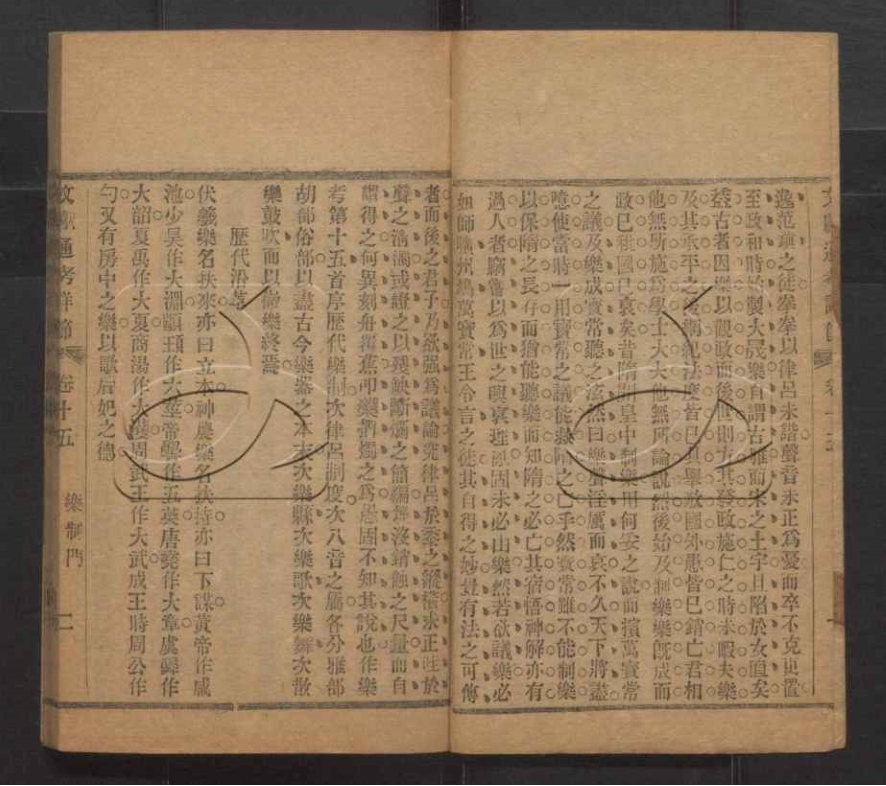 逸范鎮之徒拳拳以律呂未諧聲音未正為憂而卒不克更置
至政和時始製大晟樂自謂古雅而宋之土宇且陷於女直矣
蓋古者因樂以觀政而後世則方其發政施仁之時未暇夫樂
及其承平之後綱紀法度皆已具舉敵國外患皆已銷亡君相
他無所施為學士大夫他無所論說然後始及制樂樂既成而
政已秕國已衰矣昔隋開皇中制樂用何妥之說而擯萬寶常
之議及樂成寶常聽之泫然曰樂聲淫厲而哀不久天下將盡
噫使當時一用寶常之議能救隋之亡乎然寶常雖不能制樂
以保隋之長存而猶能聽樂而知隋之必亡其宿悟神解亦有
過人者竊嘗以為世之興衰理亂固未必由樂然若欲議樂必
如師曠州鳩萬寶常王令言之徒其自得之妙豈有法之可傳
者而後之君子乃欲強為議論究律呂於黍之縱橫求正哇於
聲之清濁或證之以殘缺斷爛之簡編埋沒銷蝕之尺量而自
謂得之何異刻舟覆蕉叩槃捫燭之為愚固不知其說也作樂
考第十五首序歷代樂制次律呂制度次八音之屬各分雅部
胡部俗部以盡古今樂器之本末次樂縣次樂歌次樂舞次散
樂鼓吹而以徹樂終焉
歷代沿革
伏羲樂名扶來亦曰立本神農樂名扶持亦曰下謀黃帝作咸
池少昊作大淵顓頊作六莖帝嚳作五英唐堯作大章虞舜作
大韶夏禹作大夏商湯作大濩周武王作大武成王時周公作
勺又有房中之樂以歌后妃之德
文獻通考詳節
卷十五
樂制門
二